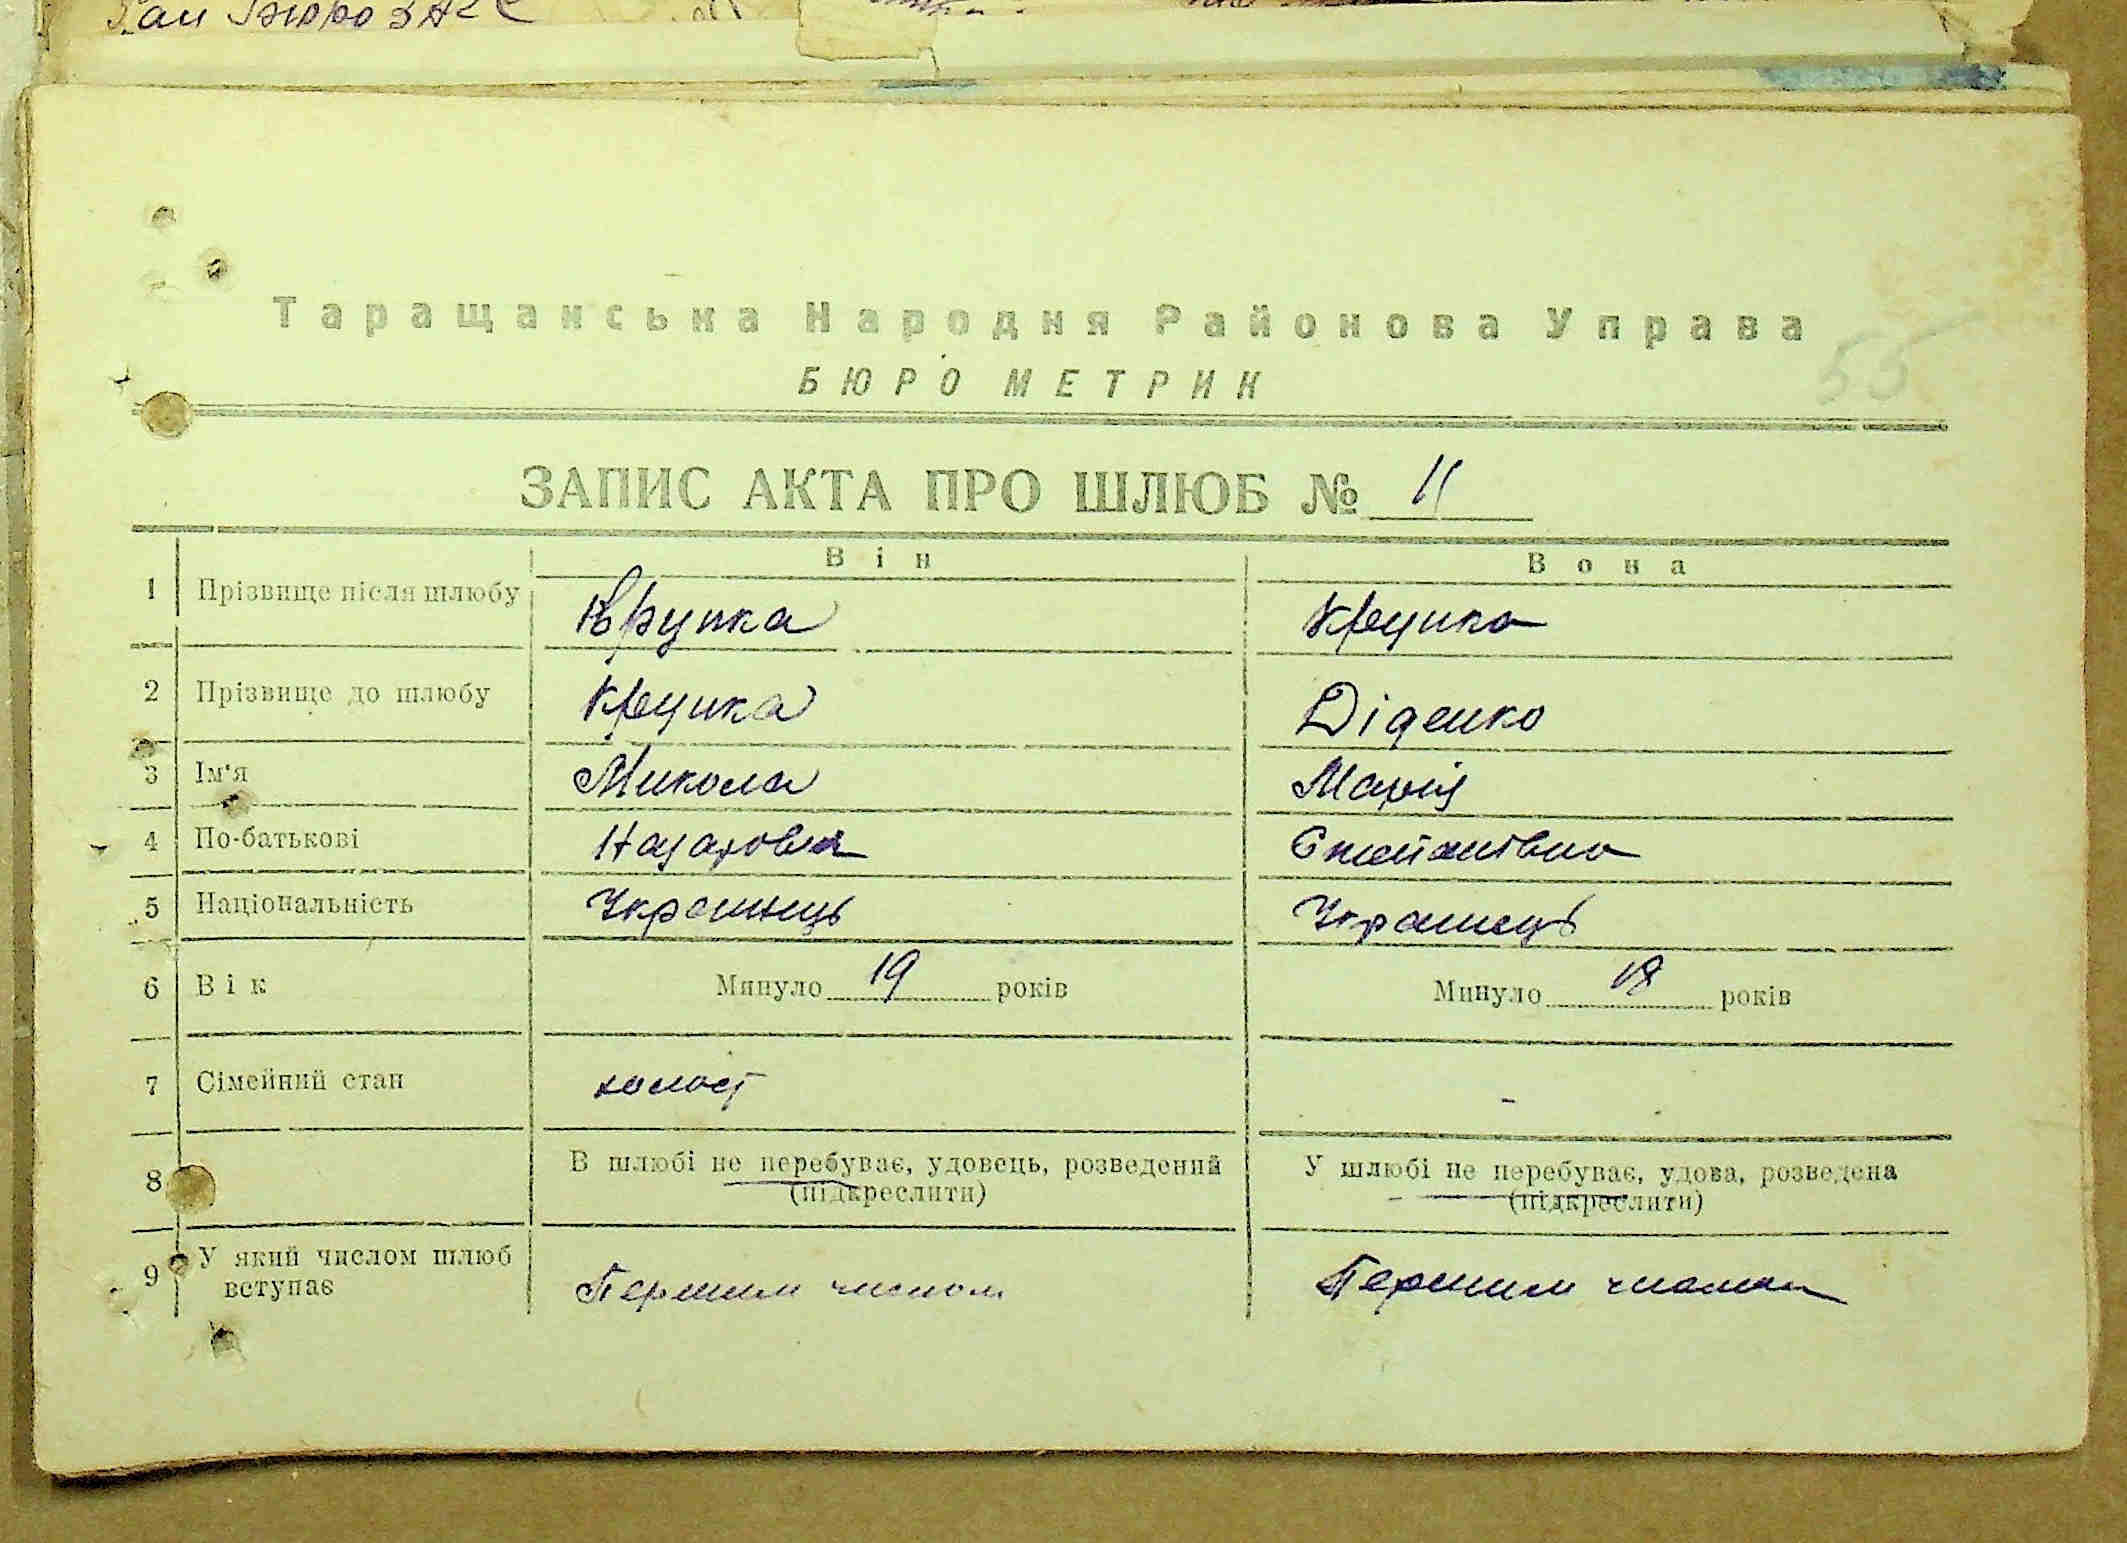 55
Таращанська Народня Районова Управа
БЮРО МЕТРИК
ЗАПИС АКТА ПРО ШЛЮБ № 11
Він Вона
1 Прізвище після шлюбу Крупка Крупка
2 Прізвище до шлюбу Крупка Діденко
3 Ім'я Микола Марія
4 По-батькові Назарович Степанівна
5 Національність Українець Українець
6 Вік Минуло 19 років Минуло 18 років
7 Сімейний стан холост -
8 В шлюбі не перебуває, удовець, розведений У шлюбі не перебуває, удова, розведена
(підкреслити) (підкреслити)
9 У який числом шлюб
вступає Першим числом Першим числом